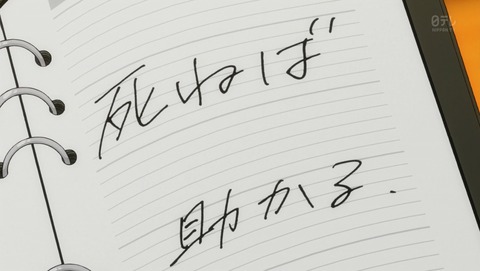 日テレ
死ねば
助かる.